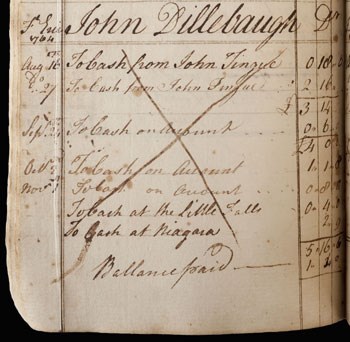 Ft Erie John Dillebaugh Dr
1764
Aug 16 To Cash from John Tingue 0 18
Do 27 To Cash from John Tingue 2 16
£ 3 14
Sept To Cash on Account 0 6
£4 0
Octr To Cash on Account 1 1
Novr 1 To Cash on Account 0 8
To Cash at the Little Falls 0 4
To Cash at Niagara 2
5 16
Ballance paid 1